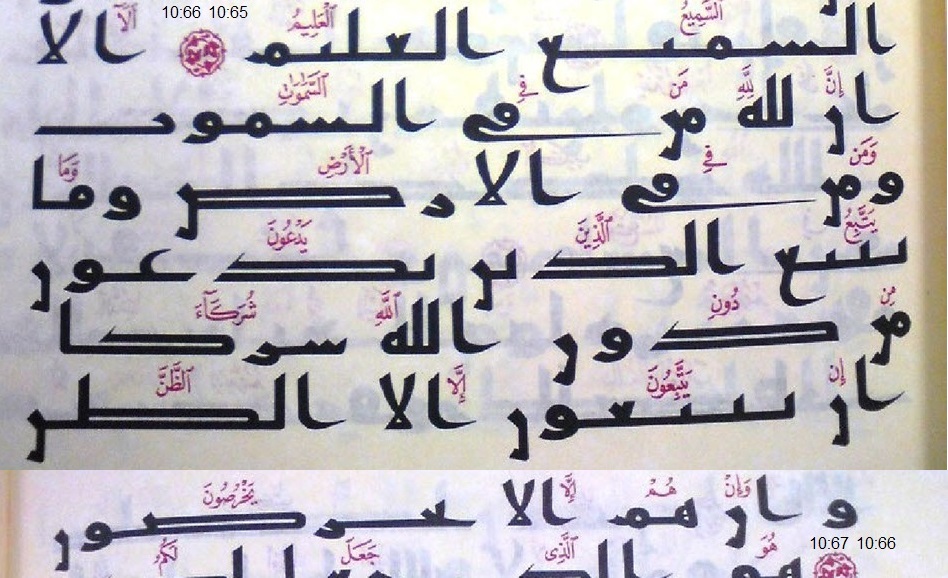 10:66 10:65
ٱلسَّمِيعُ ٱلْعَلِيمُ أَلَآ
السميع العليم الا
إِنَّ لِلَّهِ مَن فِي ٱلسَّمَٰوَٰتِ
ان لله من في السموت
وَمَن فِي ٱلْأَرْضِ وَمَا
ومن في الارض وما
يَتَّبِعُ ٱلَّذِينَ يَدْعُونَ
يتبع الذين يدعون
مِن دُونِ ٱللَّهِ شُرَكَآءَ
من دون الله شركا
إِن يَتَّبِعُونَ إِلَّا ٱلظَّنَّ
ان يتبعون الا الظن
وَإِنْ هُمْ إِلَّا يَخْرُصُونَ
وان هم الا يخرصون
10:67 10:66
هُوَ ٱلَّذِى جَعَلَ لَكُمُ